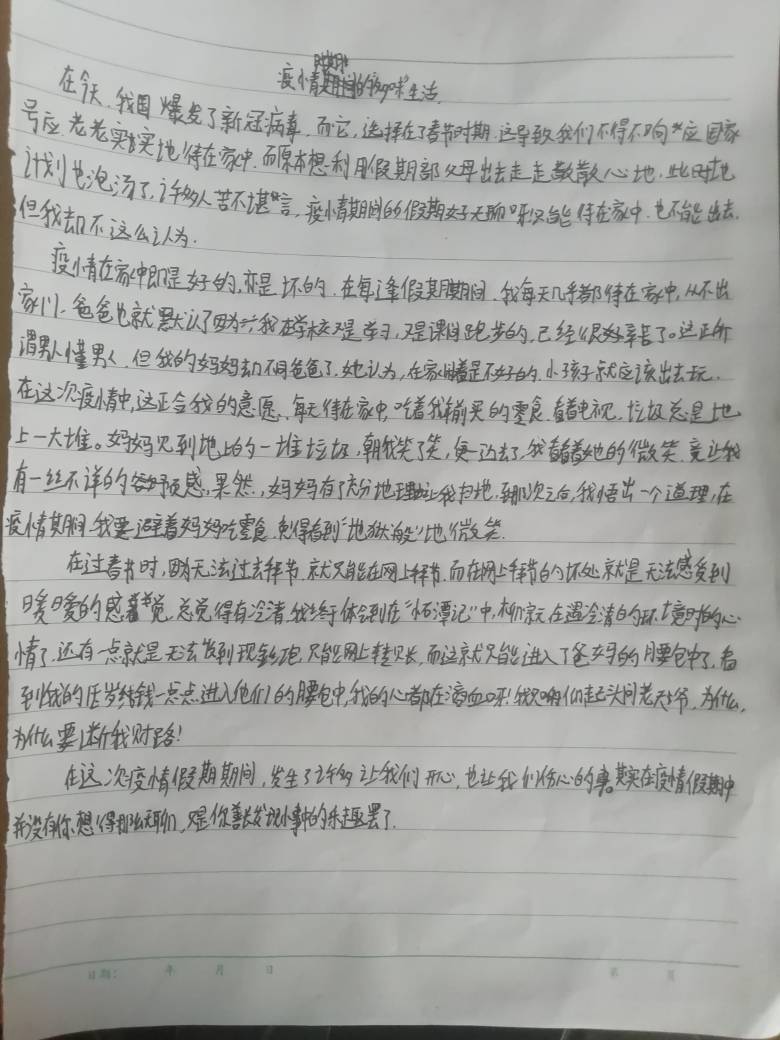 疫情期间的多味生活
在今天,我国爆发了新冠病毒,而它,选择在了春节时期.这导致我们不得不响应国家
号应,老老实实地待在家中.而原本想利用假期部父母出去走走散散心地,此时地
计划也泡汤了,许多人苦不堪言,疫情期间的假期好无聊呀只能待在家中,也不能出去.
但我却不这么认为.
疫情在家中即是好的,亦是坏的.在每逢假期期间,我每天几乎都待在家中,从不出
家门.爸爸也就默认了因为我在学校又是学习,又是课间跑步的,已经很辛苦了。这正所
谓男人懂男人,但我的妈妈却不同爸爸了,她认为,在家着是不好的,小孩子就应该出去玩.
在这次疫情中,这正合我的意愿、每天待在家中,吃着我前买的零食,看着电视,垃圾总是地
上一大堆。妈妈见到地上的一堆垃圾,朝我笑了笑,便边去了,我看着她的微笑,竟让我
有一丝不详的预感,果然,妈妈有了充分地理让我扫地,到那次之后,我悟出一个道理,在
疫情期间,我要避着妈妈吃零食,免得看到"地狱般"地微笑.
在过春节时,因为无法过去拜节,就只能在网上拜节.而在网上拜节的坏处就是无法感受到
暖暖的感觉,总觉得有冷清,我终于体会到在"小石潭记"中,柳宗元在遇冷清的环境时的心
情了,还有一点就是无法收到现金红包,只能网上转账,而这就只能进入了爸妈的腰包中了,看
到我的压岁钱一点点进入他们的腰包中,我的心都在滴血呀!我只有仰起头问老天爷,为什么,
为什么要断我财路!
在这次疫情假期期间,发生了许多让我们开心,也让我们伤心的事。其实在疫情假期中
并没有你想得那么无聊,只是你善长发现小事中的乐趣罢了.
日期: 年 月 日 第 页